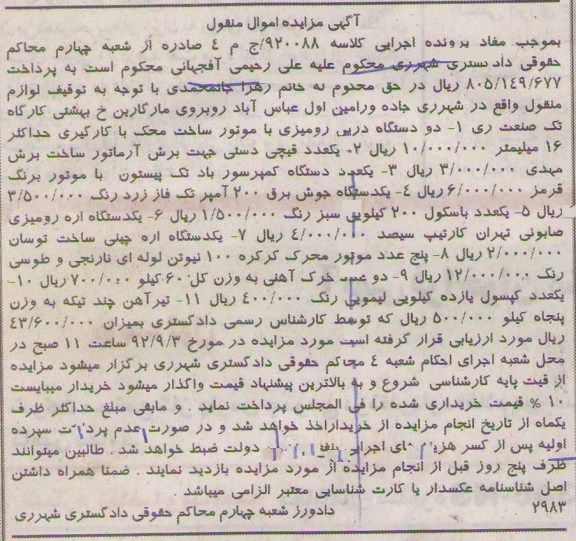 آگهی مزایده اموال منقول
بموجب مفاد پرونده اجرایی کلاسه ۹۲۰۰۸۸/ج م ٤ صادره از شعبه چهارم محاکم
حقوقی دادگستری شهرری محکوم علیه علی رحیمی آفجهانی محکوم است به پرداخت
۸۰۵/۱٤۹/۶۷۷ ریال در حق محکوم له خانم زهرا جانمحمدی با توجه به توقیف لوازم
منقول واقع در شهرری جاده ورامین اول عباس آباد روبروی مارگارین خ بهشتی کارگاه
تک صنعت ری ۱- دو دستگاه دریل رومیزی با موتور ساخت محک با کارگیری حداکثر
۱۶ میلیمتر ۱۰/۰۰۰/۰۰۰ ریال ۲- یکعدد قیچی دستی جهت برش آرماتور ساخت برش
مهدی ۳/۰۰۰/۰۰۰ ریال ۳- یکعدد دستگاه کمپرسور باد تک پیستون با موتور برنگ
قرمز ۶/۰۰۰/۰۰۰ ریال ٤- یکدستگاه جوش برق ۲۰۰ آمپر تک فاز زرد رنگ ۳/۵۰۰/۰۰۰
ریال ۵- یکعدد باسکول ۲۰۰ کیلویی سبز رنگ ۱/۵۰۰/۰۰۰ ریال ۶- یکدستگاه اره رومیزی
صابونی تهران کارتیپ سیصد ٤/۰۰۰/۰۰۰ ریال ۷- یکدستگاه اره چینی ساخت توسان
۲/۰۰۰/۰۰۰ ریال ۸- پنج عدد موتور محرک کرکره ۱۰۰ نیوتن لوله ای نارنجی و طوسی
رنگ ۱۲/۰۰۰/۰۰۰ ریال ۹- دو عدد خرک آهنی به وزن کل ۶۰ کیلو ۷۰۰/۰۰۰ ریال ۱۰-
یکعدد کپسول یازده کیلویی لیمویی رنگ ٤۰۰/۰۰۰ ریال ۱۱- تیرآهن چند تیکه به وزن
پنجاه کیلو ۵۰۰/۰۰۰ ریال که توسط کارشناس رسمی دادگستری بمیزان ٤۳/۶۰۰/۰۰۰
ریال مورد ارزیابی قرار گرفته است مورد مزایده در مورخ ۹۲/۹/۳ ساعت ۱۱ صبح در
محل شعبه اجرای احکام شعبه ٤ محاکم حقوقی دادگستری شهرری برگزار میشود مزایده
از قیت پایه کارشناسی شروع و به بالاترین پیشنهاد قیمت واگذار میشود خریدار میبایست
۱۰ % قیمت خریداری شده را فی المجلس پرداخت نماید . و مابقی مبلغ حداکثر ظرف
یکماه از تاریخ انجام مزایده از خریداراخذ خواهد شد و در صورت عدم پرداخت سپرده
اولیه پس از کسر هزینه های اجرایی بنفع دولت ضبط خواهد شد . طالبین میتوانند
ظرف پنج روز قبل از انجام مزایده از مورد مزایده بازدید نمایند . ضمنا همراه داشتن
اصل شناسنامه عکسدار یا کارت شناسایی معتبر الزامی میباشد .
۲۹۸۳ دادورز شعبه چهارم محاکم حقوقی دادگستری شهرری